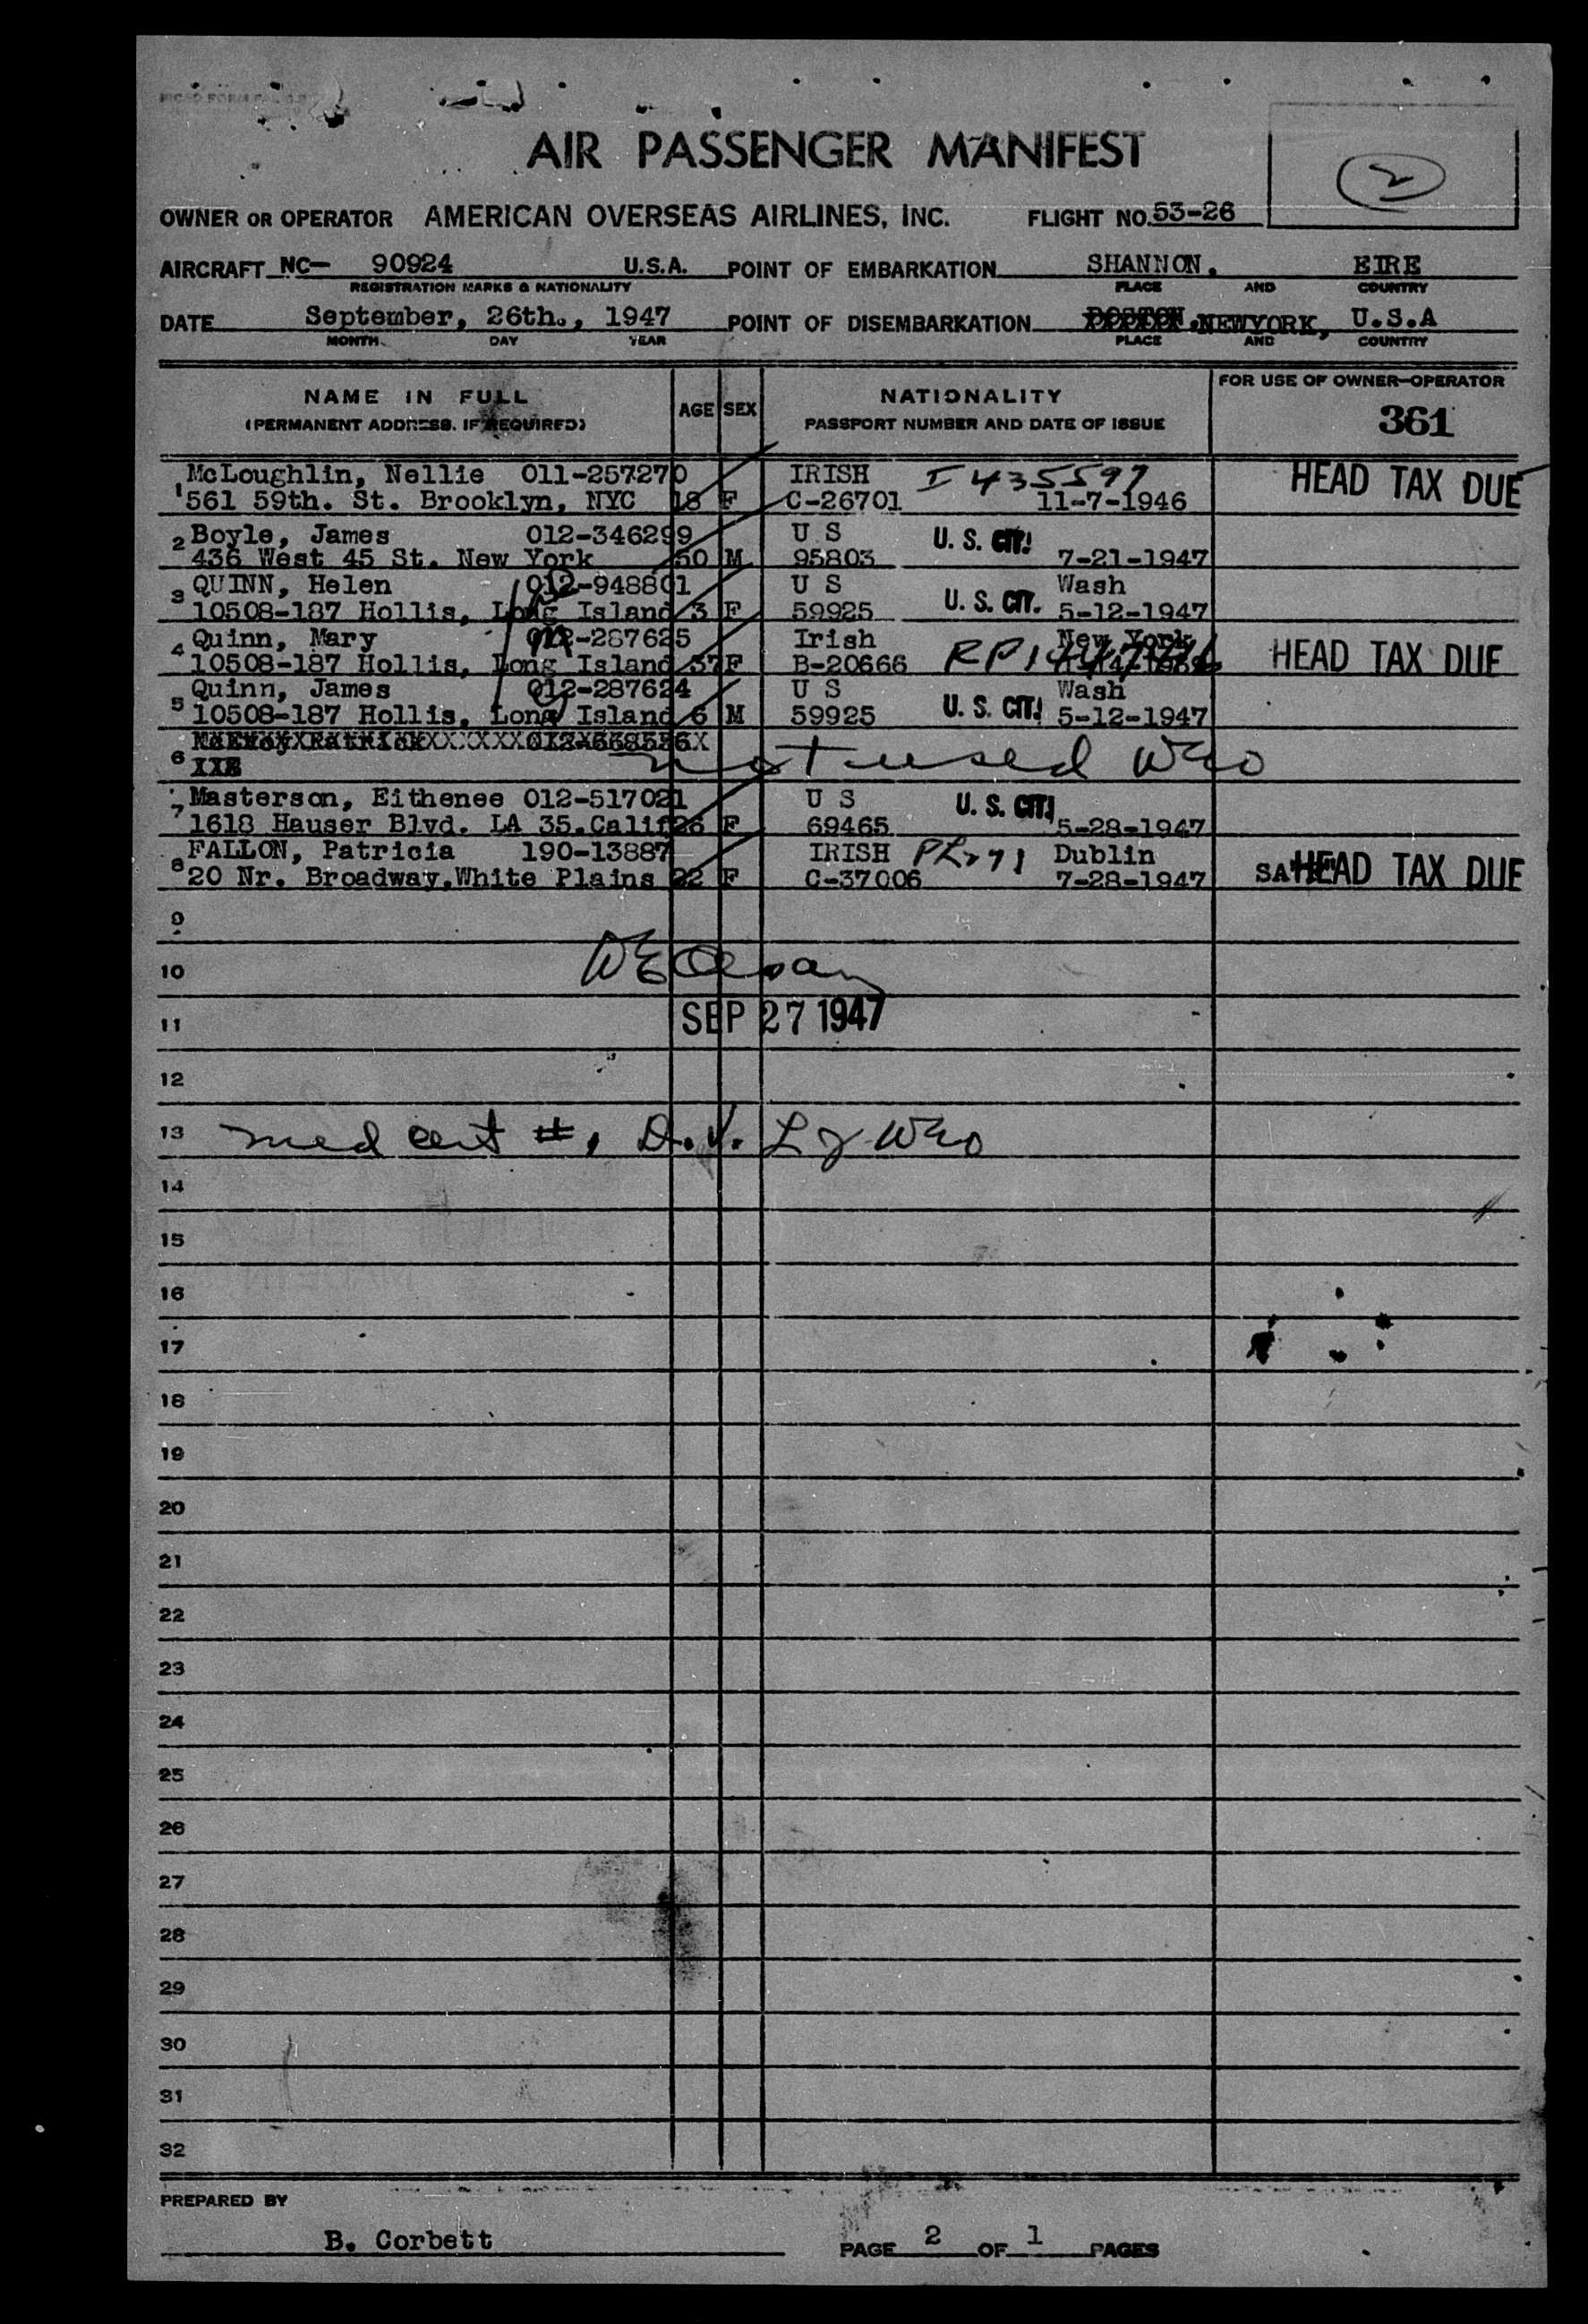 AIR PASSENGER MANIFEST
2
OWNER OR OPERATOR AMERICAN OVERSEAS AIRLINES, INC. FLIGHT NO. 53-26
AIRCRAFT NC- 90924 U.S.A. POINT OF EMBARKATION SHANNON. EIRE
REGISTRATION MARKS & NATIONALITY PLACE AND COUNTRY
DATE September, 26th., 1947 POINT OF DISEMBARKATION NEWYORK, U.S.A
MONTH DAY YEAR PLACE AND COUNTRY
NAME IN FULL AGE SEX NATIONALITY FOR USE OF OWNER-OPERATOR
(PERMANENT ADDRESS. IF REQUIRED) PASSPORT NUMBER AND DATE OF ISSUE 361
1 McLoughlin, Nellie 011-257270 IRISH I 435597 HEAD TAX DUE
561 59th. St. Brooklyn, NYC 18 F C-26701 11-7-1946
2 Boyle, James 012-346299 U S U. S. CIT.
436 West 45 St. New York 50 M 95803 7-21-1947
3 QUINN, Helen 012-948801 U S Wash
10508-187 Hollis, Long Island 3 F 59925 U. S. CIT. 5-12-1947
4 Quinn, Mary 012-287625 Irish New York
10508-187 Hollis, Long Island 37 F B-20666 HEAD TAX DUE
5 Quinn, James 012-287624 U S Wash
10508-187 Hollis, Long Island 6 M 59925 U. S. CIT. 5-12-1947
6 not used WEO
7 Masterson, Eithenee 012-517021 U S U. S. CIT.
1618 Hauser Blvd. LA 35. Calif 26 F 69465 5-28-1947
8 FALLON, Patricia 190-13887 IRISH Dublin HEAD TAX DUE
20 Nr. Broadway,White Plains 22 F C-37006 7-28-1947
9
10
11 SEP 27 1947
12
13 med cert #, WEO
14
15
16
17
18
19
20
21
22
23
24
25
26
27
28
29
30
31
32
PREPARED BY
B. Corbett
PAGE 2 OF 1 PAGES